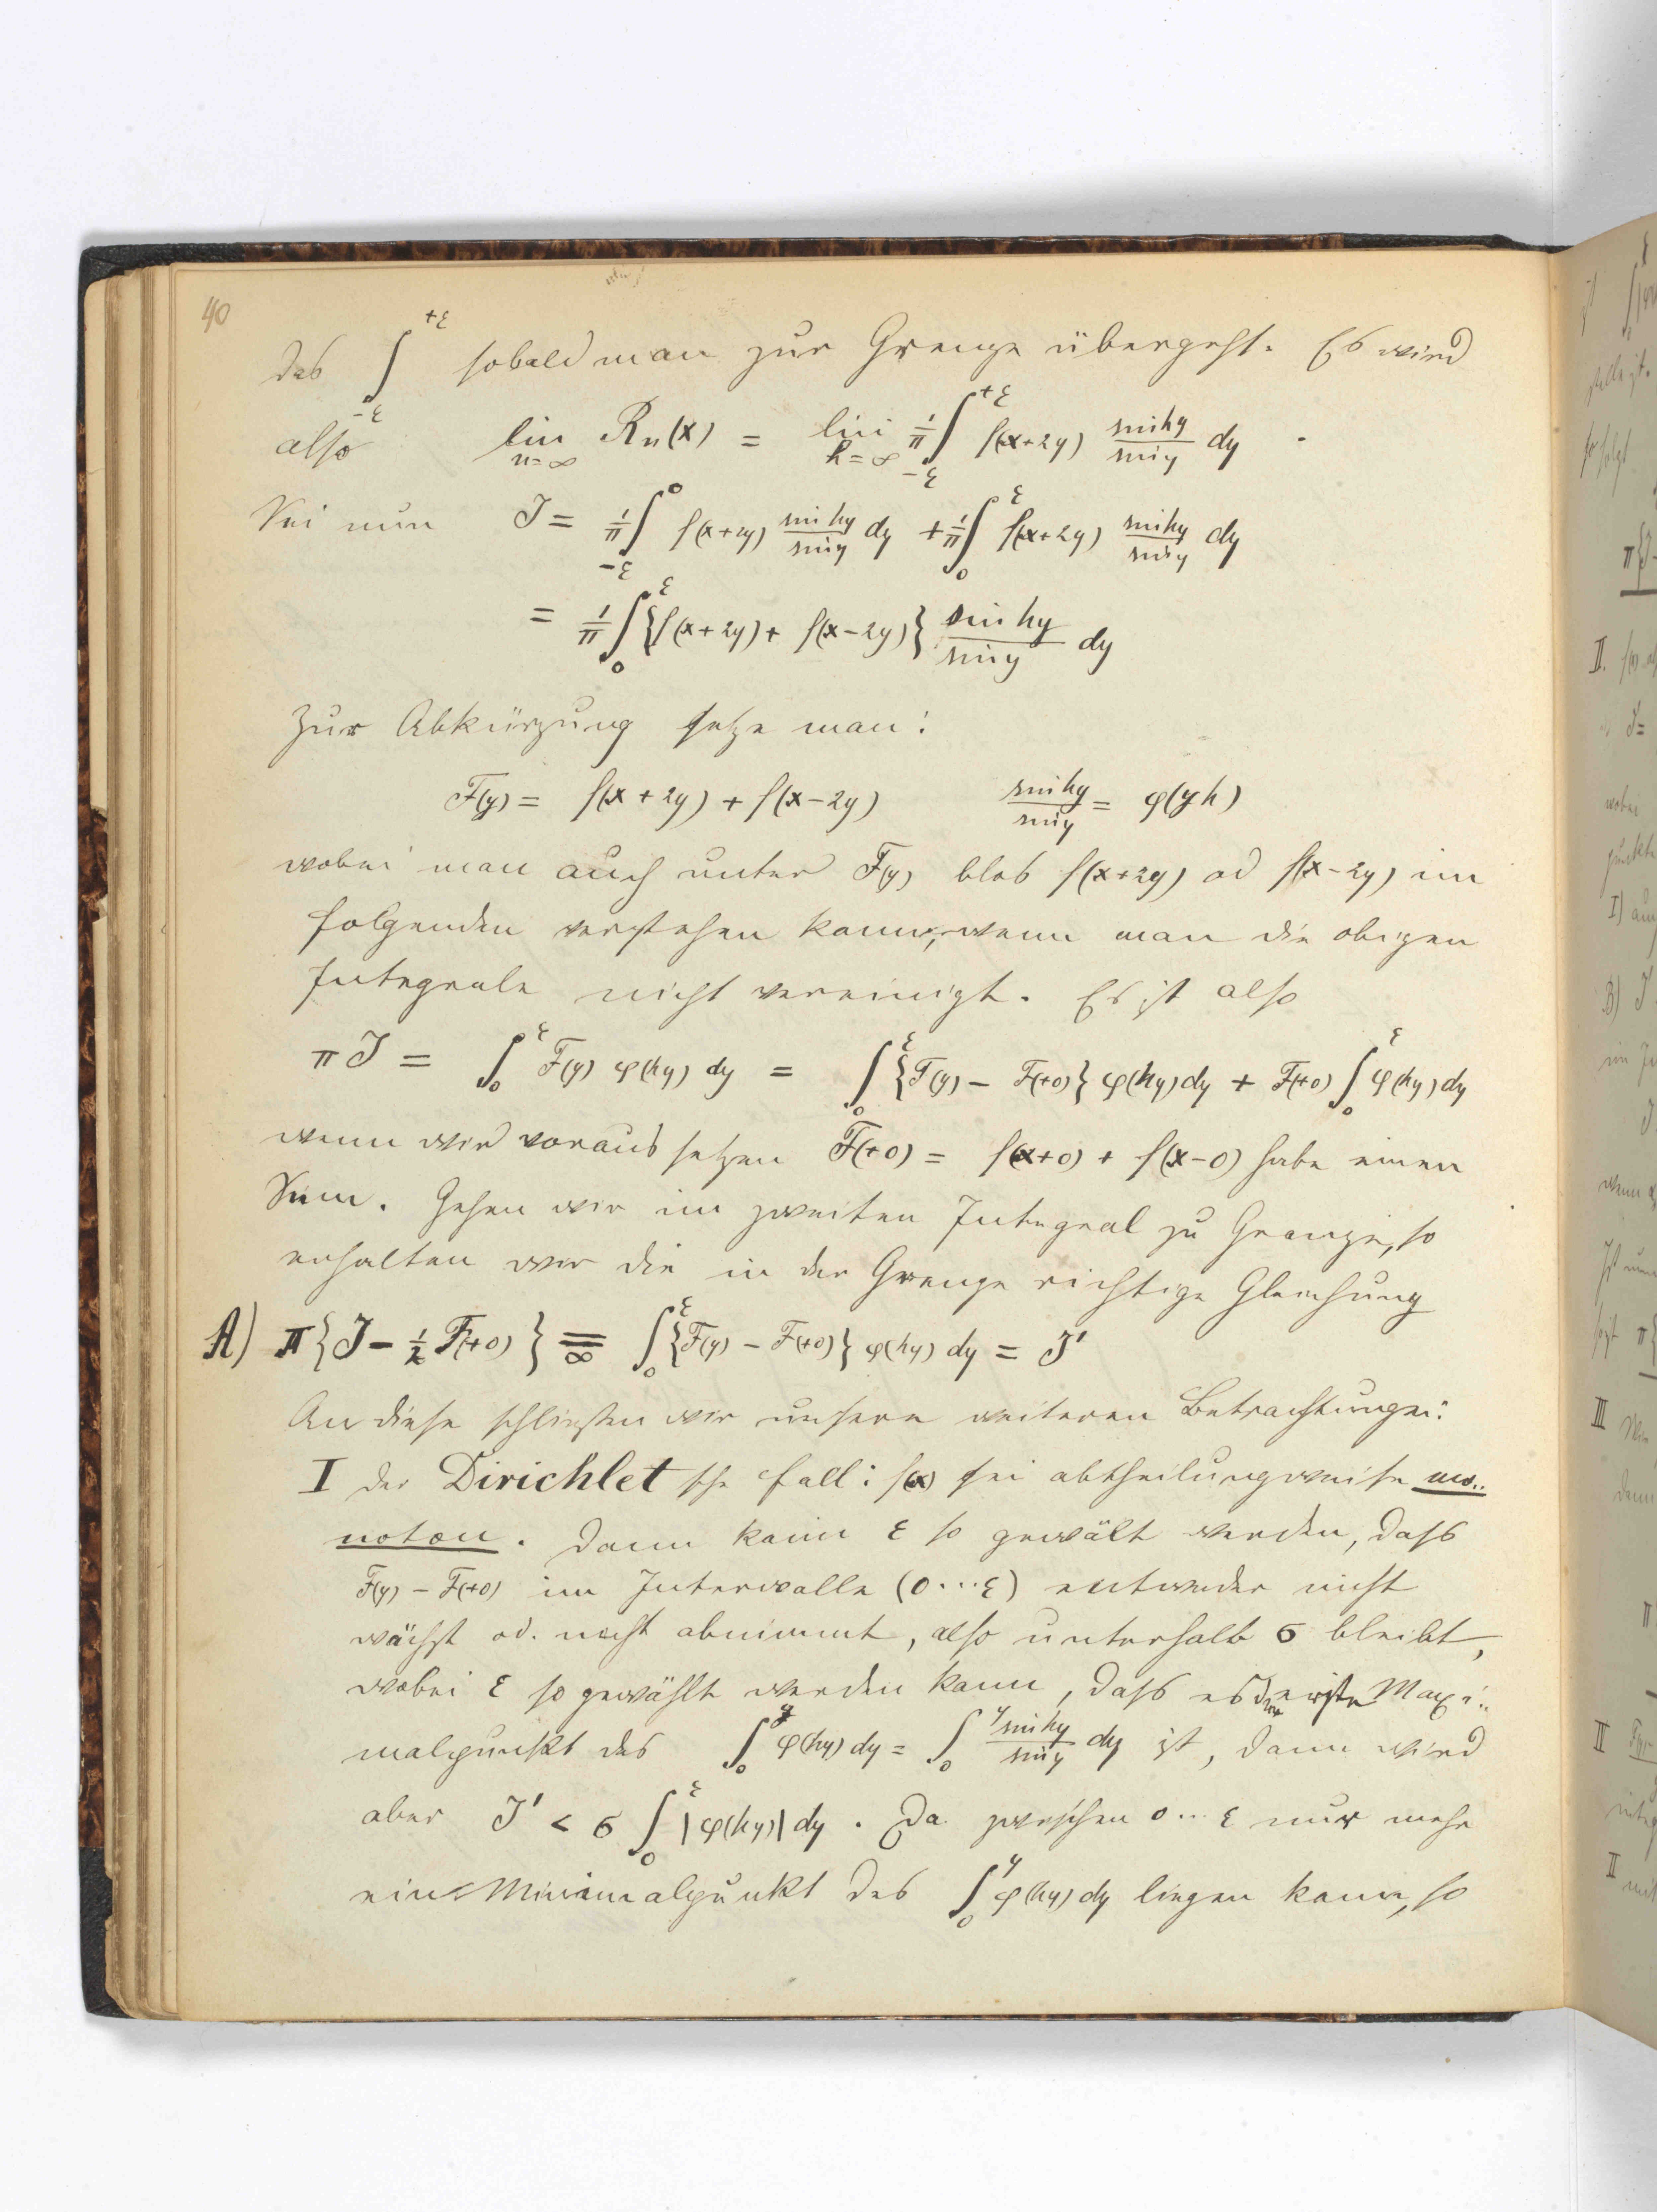 40
das ∫_{-ε}^{+ε} sobald man zur Grenze übergeht. Es wird
also lim_{n=∞} R_n(x) = lim_{h=∞} 1/π ∫_{-ε}^{+ε} f(x+2y) sin hy / sin y dy .
Sei nun J = 1/π ∫_{-ε}^{0} f(x+2y) sin hy / sin y dy + 1/π ∫_{0}^{ε} f(x+2y) sin hy / sin y dy
= 1/π ∫_{0}^{ε} {f(x+2y) + f(x-2y)} sin hy / sin y dy
Zur Abkürzung setze man:
F(y) = f(x+2y) + f(x-2y) sin hy / sin y = φ(yh)
wobei man auch unter F(y) blos f(x+2y) od f(x-2y) im
folgenden verstehen kann, wenn man die obigen
Integrale nicht vereinigt. Es ist also
πJ = ∫_{0}^{ε} F(y) φ(hy) dy = ∫_{0}^{ε} {F(y) - F(+0)} φ(hy) dy + F(+0) ∫_{0}^{ε} φ(hy) dy
wenn wir voraus setzen F(+0) = f(x+0) + f(x-0) habe einen
Sinn. Gehen wir im zweiten Integral zu Grenze, so
erhalten wir die in der Grenze richtige Gleichung
A) π{J - 1/2 F(+0)} =_{∞} ∫_{0}^{ε} {F(y) - F(+0)} φ(hy) dy = J'
An diese schließen wir unsere weiteren Betrachtungen:
I der Dirichlet sche Fall: f(x) sei abtheilungsweise mo..
noton. Dann kann ε so gewält werden, dass
F(y) - F(+0) im Intervalle (0...ε) entweder nicht
wächst od. nicht abnimmt, also unterhalb σ bleibt,
wobei ε so gewählt werden kann, dass es der erste Maxi..
malpunkt des ∫_{0}^{y} φ(hy) dy = ∫_{0}^{y} sin hy / sin y dy ist, dann wird
aber J' < σ ∫_{0}^{ε} |φ(hy)| dy . Da zwischen 0...ε nur mehr
ein Minimalpunkt des ∫_{0}^{y} φ(hy) dy liegen kann, so